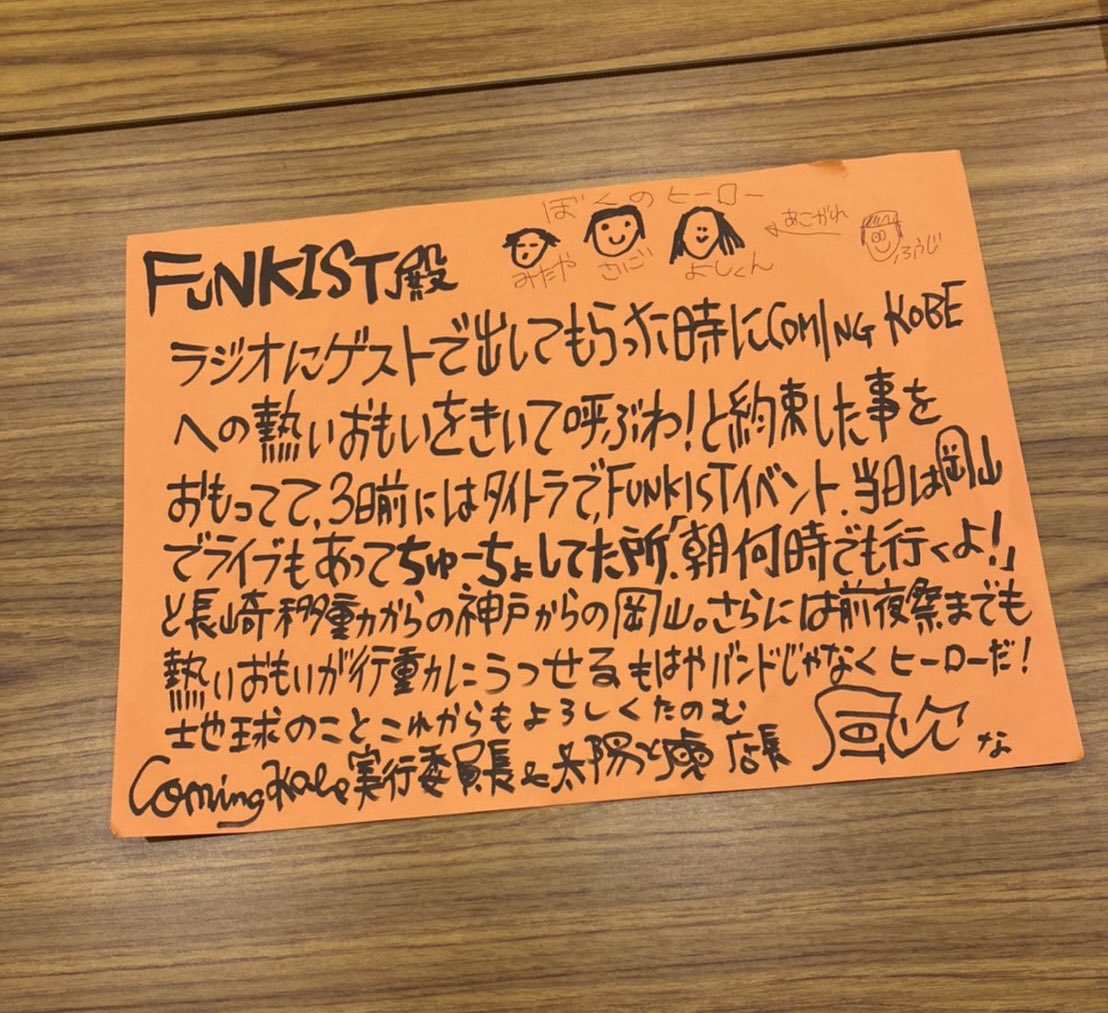 ぼくのヒーロー
みたや さいご よしくん
あこがれ
ふうじ
FUNKIST殿
ラジオにゲストで出してもらった時にCOMING KOBE
への熱いおもいをきいて呼ぶわ!と約束した事を
おもってて、3日前にはタイトラで、FUNKISTイベント、当日は岡山
でライブもあってちゅーちょしてた所、「朝何時でも行くよ!」
と長崎移動からの神戸からの岡山。さらには前夜祭までも
熱いおもいが行動にうつせるもはやバンドじゃなくヒーローだ!
地球のことこれからもよろしくたのむ
Coming Kobe実行委員長&太陽と虎 店長 風次 な